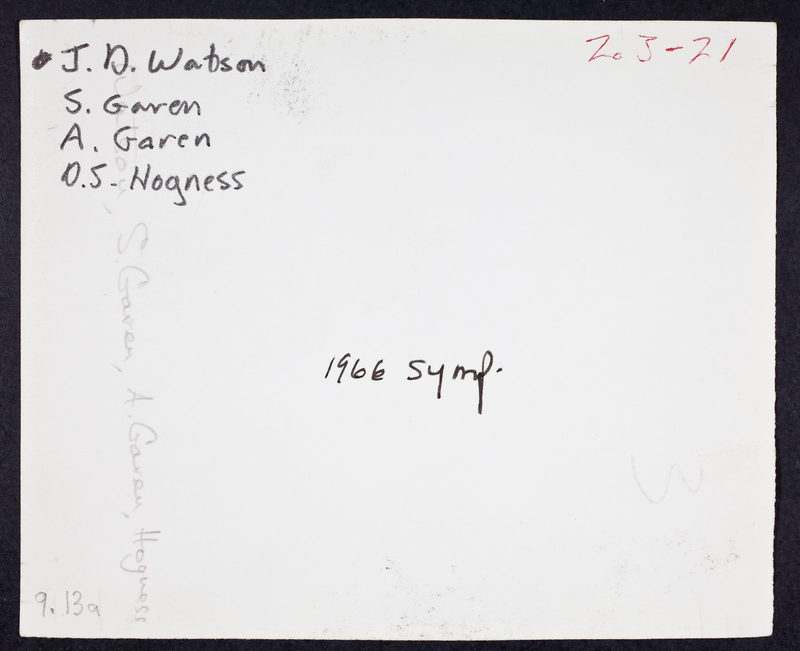 J. D. Watson
2.3-21
S. Garen
A. Garen
D.S. Hogness
Watson, S. Garen, A. Garen, Hogness
1966 Symp.
3
9.13a